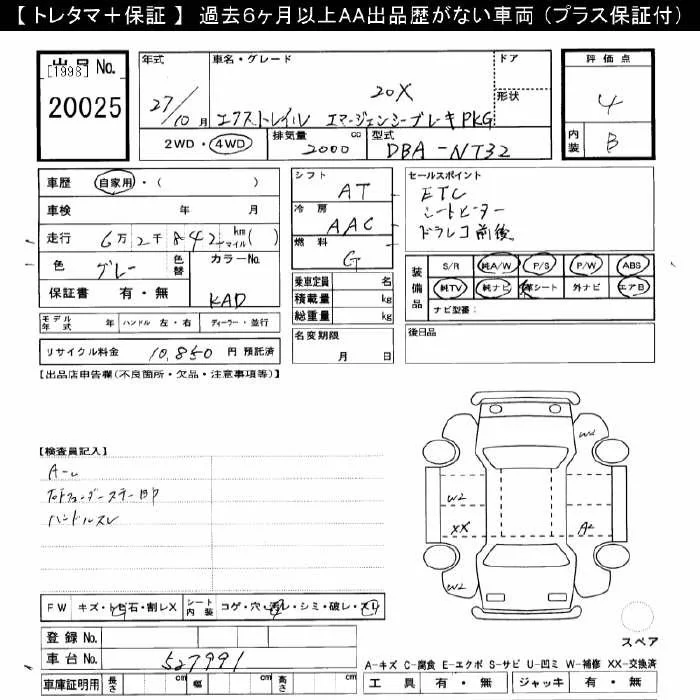 【 トレタマ＋保証 】 過去6ヶ月以上AA出品歴がない車両（プラス保証付）
出品 No.
[1998]
20025
年式 27/10月
車名・グレード 20X
エクストレイル エマージェンシーブレーキPKG
ドア
形状
2WD・4WD
排気量 2000 cc
型式 DBA-NT32
評価点 4
内装 B
車歴 自家用・（ ）
車検 年 月
走行 6万2千842 km マイル( )
色 グレー 色替 カラーNo. KAD
保証書 有・無
シフト AT
冷房 AAC
燃料 G
乗車定員 名
積載量 kg
総重量 kg
セールスポイント
ETC
シートヒーター
ドラレコ前後
装備品 S/R 純A/W P/S P/W ABS
純TV 純ナビ 革シート 外ナビ エアB
ナビ型番：
モデル年式 年 ハンドル 左・右 ディーラー・並行
名変期限 月 日
後日品
リサイクル料金 10,850 円 預託済
【出品店申告欄(不良箇所・欠品・注意事項等)】
【検査員記入】
ハンドルスレ
W2
W2
XX
A2
W2
W2
FW キズ・トビ石・割レX シート内装 コゲ・穴・汚レ・シミ・破レ・スレ
登録 No.
車台 No. 527991
スペア
A-キズ C-腐食 E-エクボ S-サビ U-凹ミ W-補修 XX-交換済
車庫証明用 長さ cm 幅 cm 高さ cm
工具 有・無 ジャッキ 有・無